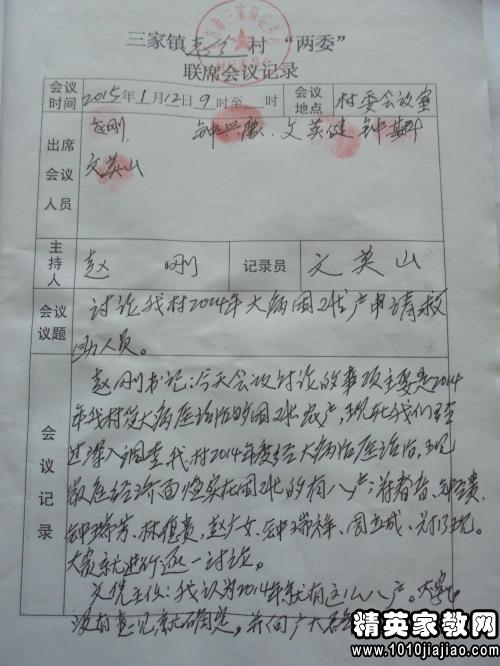 三家镇 村 “两委”
联席会议记录
会议时间 2015年1月12日9时至 时 会议地点 村委会议室
出席会议人员 赵刚 钟兴 文英健 钟
文英山
主持人 赵刚 记录员 文英山
会议议题 讨论我村2014年大病困难户申请救
助人员。
会议记录
赵刚书记:今天会议讨论的事项主要是2014
年我村受大病医治的困难农户,现在我们经
过深入调查我村2014年 大病治医治,现
家庭经济面临 困难的有八户:蒋 、钟 贵、
钟瑞芳、林 贵、赵广女、钟瑞祥、周 成、
大家就进行逐一讨论。
文 主任:我认为2014年就有这八户。大家
没有意见就确定,并向广大
精英家教网
www.1010jiajiao.com